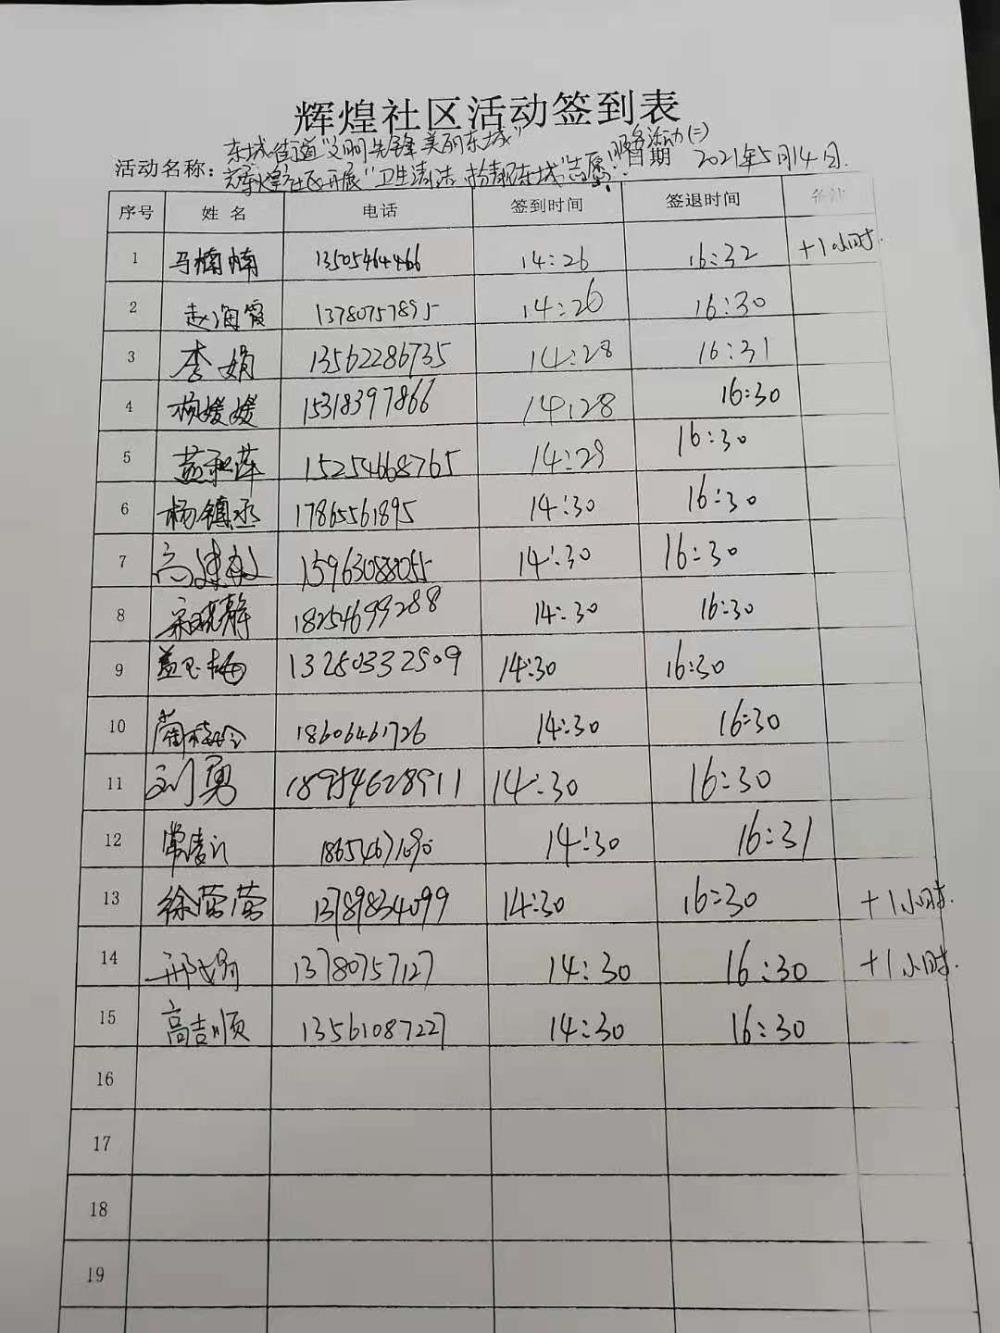 辉煌社区活动签到表
东城街道"文明先锋 美丽东城"
活动名称: 辉煌社区开展"卫生清洁 扮靓东城"志愿服务活动(二) 日期 2021年5月14日.
序号 姓名 电话 签到时间 签退时间 备注
1 马楠楠 13505464466 14:26 16:32 +1小时.
2 赵海霞 13780757895 14:26 16:30
3 李娟 13562286735 14:28 16:31
4 杨媛媛 15318397866 14:28 16:30
5 15254668765 14:29 16:30
6 杨镇丞 17865561895 14:30 16:30
7 15963088055 14:30 16:30
8 宋晓静 18254699288 14:30 16:30
9 盖玉梅 13250332509 14:30 16:30
10 18606461726 14:30 16:30
11 刘勇 18954628911 14:30 16:30
12 14:30 16:31
13 徐蓉蓉 13789834099 14:30 16:30 +1小时.
14 13780757127 14:30 16:30 +1小时.
15 高吉顺 13561087227 14:30 16:30
16
17
18
19